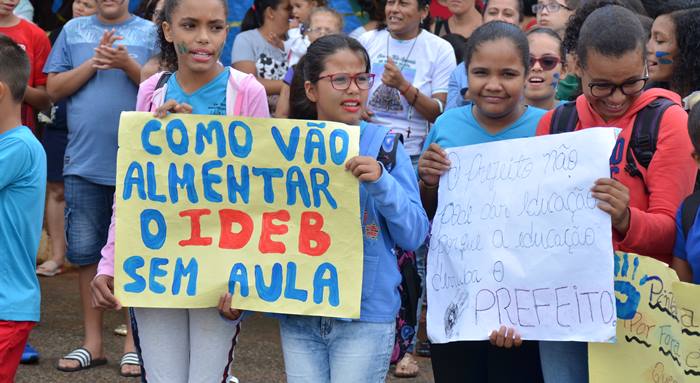 COMO VÃO
ALMENTAR
O IDEB
SEM AULA
O Prefeito não
dar educação
porque a educação
derruba o
PREFEITO.
Por Fora